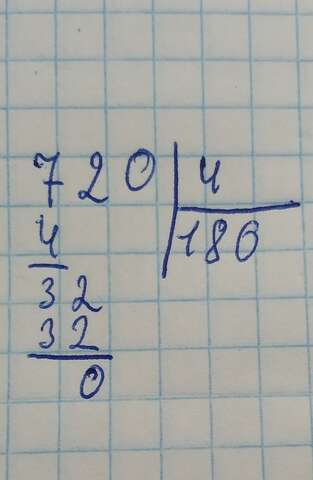 720 4
4 180
32
32
0